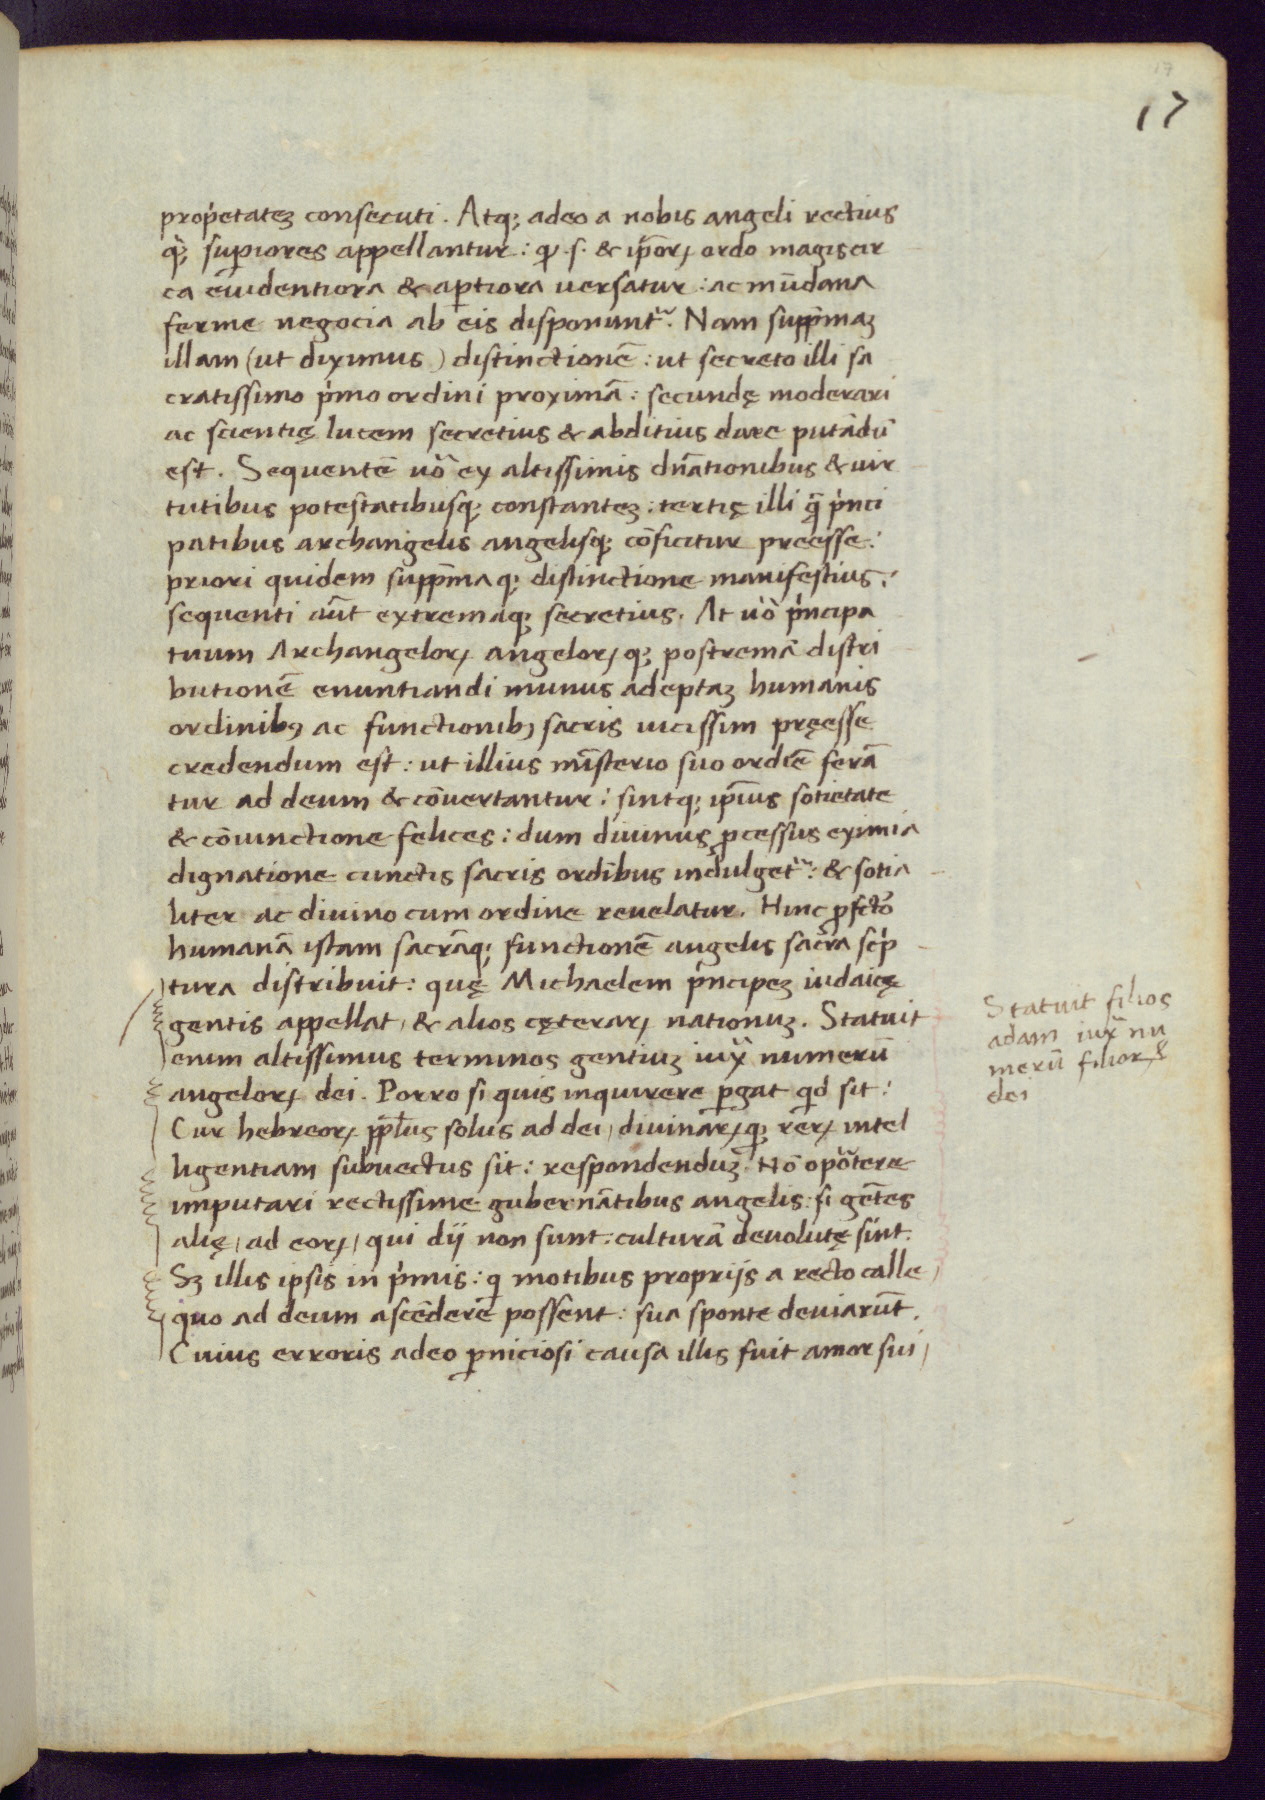 17
17
prop̍etatez consecuti. Atq; adeo a nobis angeli rectius
q̈; sup̱iores appellantur: q̱ .s. & ip̄oꝝ ordo magis cir
ca euidentiora & ap̱tiora uersatur: ac mūdana
ferme negocia ab eis disponunt᷑. Nam supp̄maz
illam (ut diximus) distinctionē: ut secreto illi sa
cratissimo p̍mo ordini proximā: secundę moderari
ac scientię lucem secretius & abditius dare putādū
est. Sequentē uo᷑ ex altissimis dn̄ationibus & uir
tutibus potestatibusq; constantez: tertię illi q̄̈ p̍nci
patibus archangelis angelisq; cōficitur preesse:
priori quidem supp̄maq; distinctione manifestius:
sequenti aūt extremaq; secretius. At uo᷑ p̍ncipa
tuum Archangeloꝝ angeloꝝq; postremā distri
butionē enuntiandi munus adeptaz humanis
ordinibꝰ ac functionibꝰ sacris uicissim pręesse
credendum est: ut illius mīsterio suo ordīe ferā
tur ad deum & cōuertantur: sintq; ip̄ius sotietate
& cōiunctione felices: dum diuinus ꝓcessus eximia
dignatione cunctis sacris ordībus indulget᷑: & sotia
liter ac diuino cum ordine reuelatur. Hinc ꝓfcto᷑
humanā istam sacrāq; functionē angelis sacra scp̍
tura distribuit: quę Michaelem p̍ncipez iudaicę
gentis appellat, & alios cęteraꝝ nationuz. Statuit
enim altissimus terminos gentiuz iux̄ numerū
angeloꝝ dei. Porro si quis inquirere ꝑgat qd̍ sit:
Cur hebreoꝝ pp̄lus solus ad dei, diuinaꝝq; reꝝ intel
ligentiam subuectus sit: respondenduz: Nō opo᷑tere
imputari rectissime gubernātibus angelis: si gētes
alię, ad eoꝝ, qui dij non sunt: culturā deuolutę sint.
Sz illis ipsis in p̍mis: q̱ motibus proprijs a recto calle,
quo ad deum ascēdere possent: sua sponte deuiarūt.
Cuius erroris adeo ꝑniciosi causa illis fuit amor sui,
Statuit filios
adam iux̄ nu
merū filioꝝ
dei